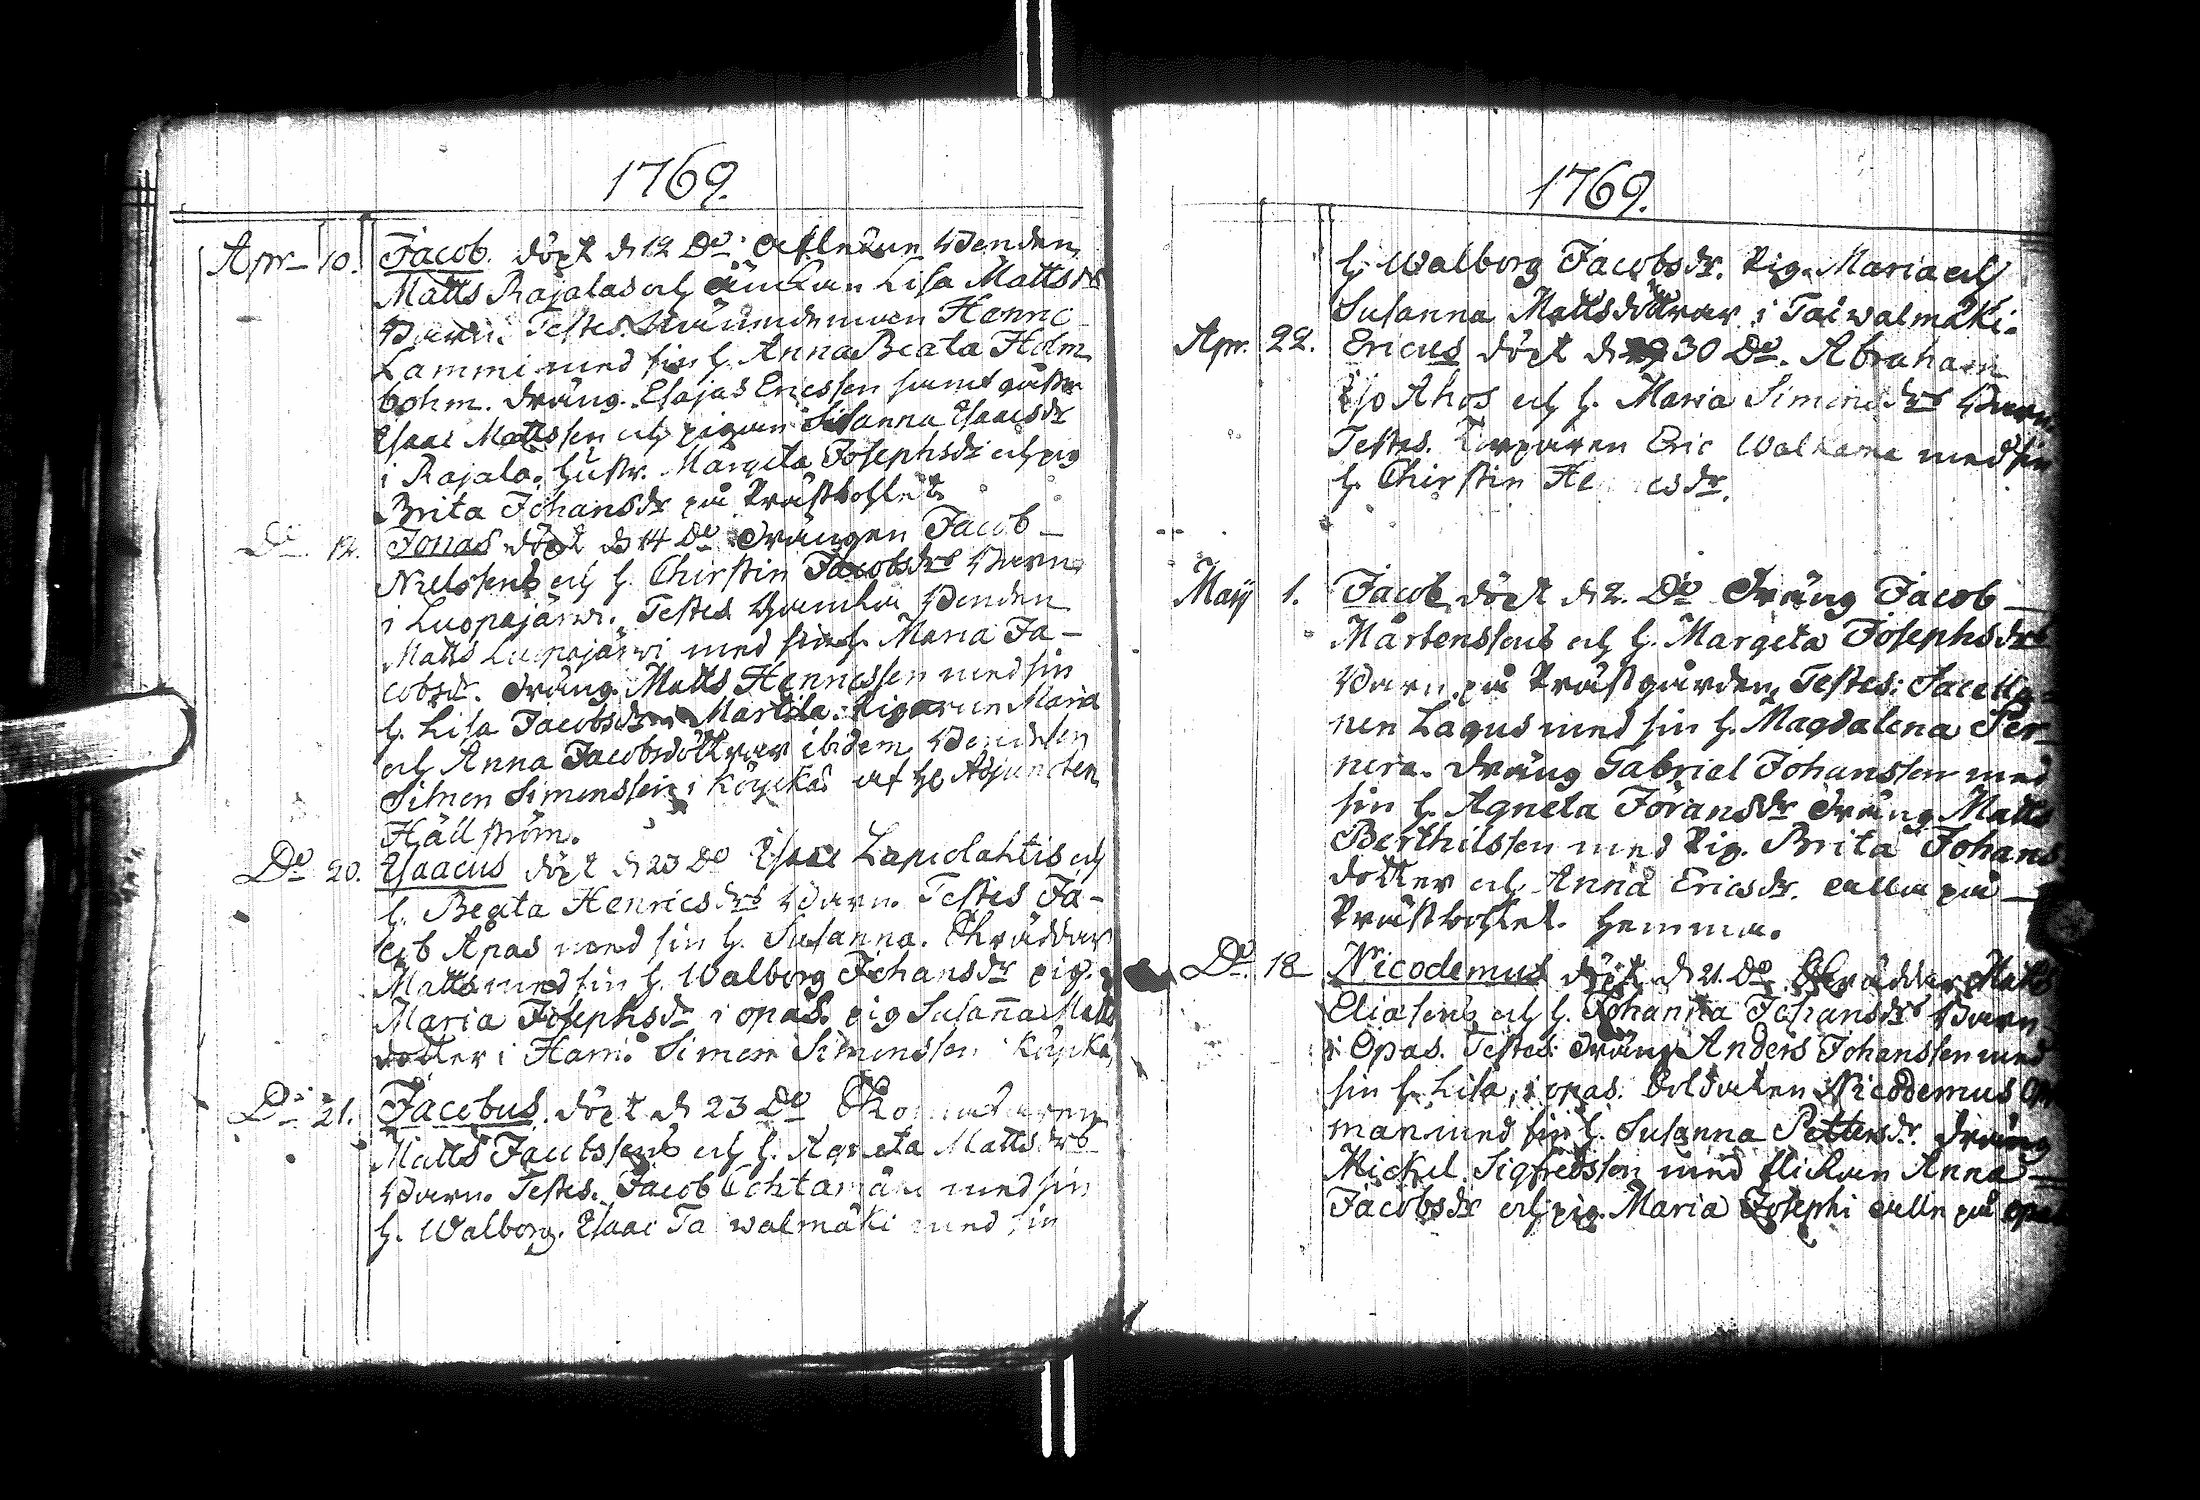 1769.
Apr. 10. Jacob. döpt d 12 Do. Afledne Bonden
Matts Rajalas och Änkan Lisa Mattsdrs
Barn. Testes. Henric
Lammi med sin h. Anna Beata Holm
bohm. dräng. Esajas Ericssen samt
Esaac Mattssen och pigan Susanna Esaacsdr
i Rajala. hustr. Margeta Josephsdr och pig
Brita Johansdr på Prästbohlet.
Do 12. Jonas döpt d 14 Do. Drängen Jacob
Nielssens och h. Chirstin Jacobsdrs Barn
i Luopajärvi. Testes Gamla Bonden
Matts Luopajärvi med sin h. Maria Ja-
cobsdr. Dräng. Matts Henricssen med sin
h. Lisa Jacobsdr Martila. Pigorne Maria
och Anna Jacobsdöttrar ibidem Bondesen
Simen Simenssen i Köykä af Hr Adjuncten
Hällström.
Do 20. Esaacus döpt d 23 Do Esaac Lapiolahtis och
h. Beata Henricsdrs Barn. Testes Ja-
cob Apas med sin h. Susanna. Skräddar
Matts med sin h. Walborg Johansdr pig.
Maria Josephsdr i opas. pig Susanna Matts
dotter i Harri. Simen Simenssen i Köykä
Do 21. Jacobus. döpt d 23 Do
Matts Jacobssens och h. Agneta Mattsdrs
Barn. Testes. Jacob med sin
h. Walborg. Esaac Taiwalmäki med sin
1769.
h. Walborg Jacobsdr. Pig. Maria och
Susanna Mattsdöttrar i Taiwalmäki.
Apr. 22. Ericus döpt d 30 Do. Abraham
Ahos och h. Maria Simensdrs Barn
Testes. Torparen Eric med sin
h. Chirstin
Maij 1. Jacob döpt d 2. Do Dräng Jacob
Mårtenssens och h. Margeta Josephsdrs
Barn på Prästgården. Testes: Sacella-
nen Lagus med sin h. Magdalena Per-
nera. Dräng Gabriel Johanssen med
sin h. Agneta Jöransdr Dräng Matts
Berthilssen med Pig. Brita Johans
dotter och Anna Ericsdr. alla på
Prästbohlet. hemma.
Do 18 Nicodemus döpt d 21. Do Skräddar Matts
Eliasens och h. Johanna Johansdrs Barn
i Opas. Testes: Dräng Anders Johanssen med
sin h. Lisa, i opas. Soldaten Nicodemus Op
man med sin h. Susanna Pettersdr. Dräng
Mickel Sigfredssen med flickan Anna
Jacobsdr och pig. Maria Josephi alle på opas